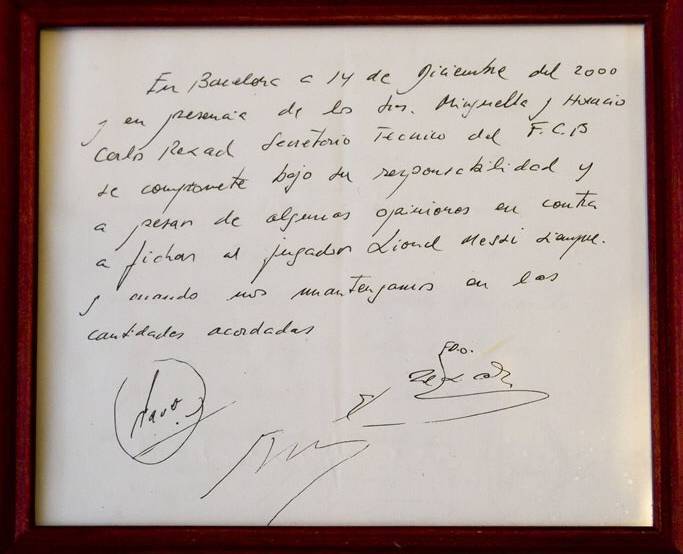 En Barcelona a 14 de Diciembre del 2000
y en presencia de los Sres. Minguella y Horacio
Carlos Rexach Secretorio Tecnico del F.C.B
se compromete bajo su responsabilidad y
a pesar de algunas opiniones en contra
a fichar al jugador Lionel Messi siempre.
y cuando nos mantengamos en las
cantidades acordadas
FDO.